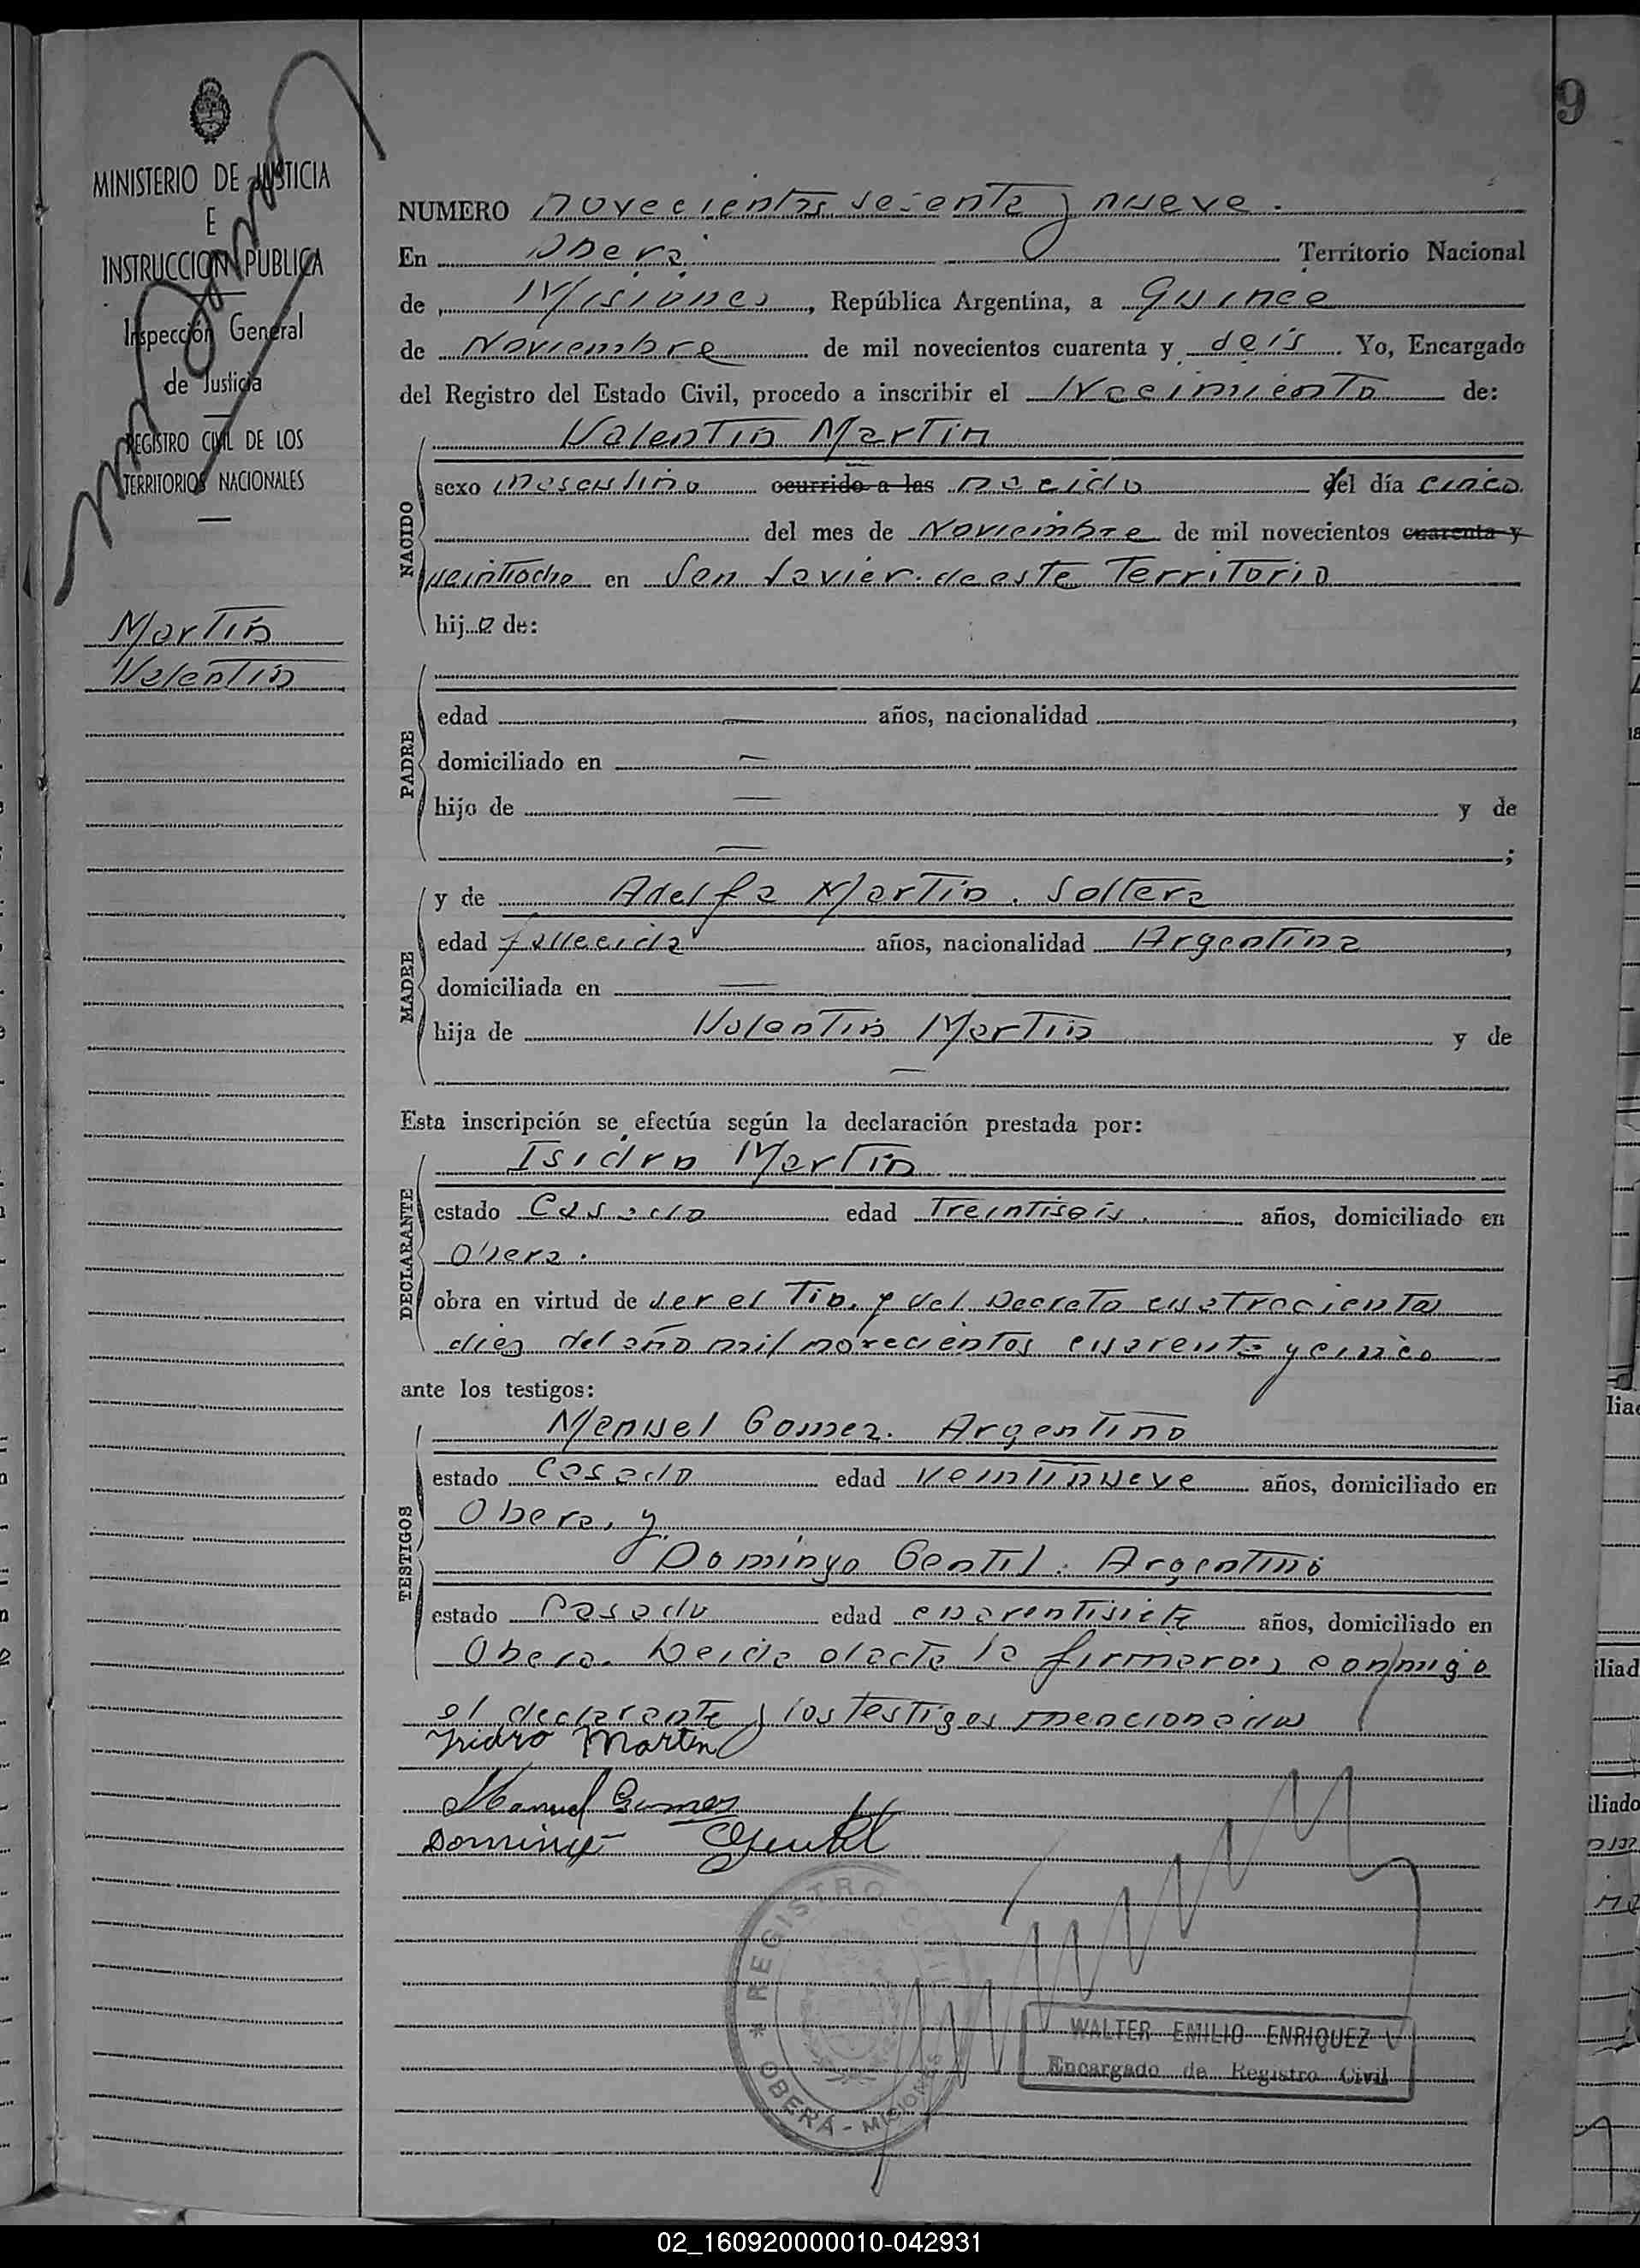 9
MINISTERIO DE JUSTICIA
E
INSTRUCCION PUBLICA
Inspección General
de Justicia
REGISTRO CIVIL DE LOS
TERRITORIOS NACIONALES
Martin
Valentin
NUMERO novecientos sesenta y nueve.
En Obera Territorio Nacional
de Misiones, República Argentina, a Quince
de Noviembre de mil novecientos cuarenta y seis. Yo, Encargado
del Registro del Estado Civil, procedo a inscribir el Nacimiento de:
NACIDO
Valentin Martin
sexo masculino ocurrido a las nacido el día cinco
del mes de Noviembre de mil novecientos cuarenta y
veintiocho en San Javier. de este Territorio
hijo de:
PADRE
edad — años, nacionalidad ,
domiciliado en —
hijo de — y de
— ;
MADRE
y de Adelfa Martin. Soltera
edad fallecida años, nacionalidad Argentina,
domiciliada en —
hija de Valentin Martin y de
—
Esta inscripción se efectúa según la declaración prestada por:
DECLARANTE
Isidro Martin
estado Casado edad Treintiseis. años, domiciliado en
Obera.
obra en virtud de ser el Tio. y del Decreto cuatrocientos
diez del año mil novecientos cuarenta y cinco
ante los testigos:
TESTIGOS
Manuel Gomez. Argentino
estado Casado edad veintinueve años, domiciliado en
Obera, y
Domingo Gentil. Argentino
estado Casado edad cuarentisiete años, domiciliado en
Obera. Leida el acta la firmaron conmigo
el declarante y los testigos mencionados
Isidro Martin
Manuel Gomes
Domingo Gentil
REGISTRO CIVIL
* OBERÁ - MISIONES
WALTER EMILIO ENRIQUEZ V
Encargado de Registro Civil
02_160920000010-042931